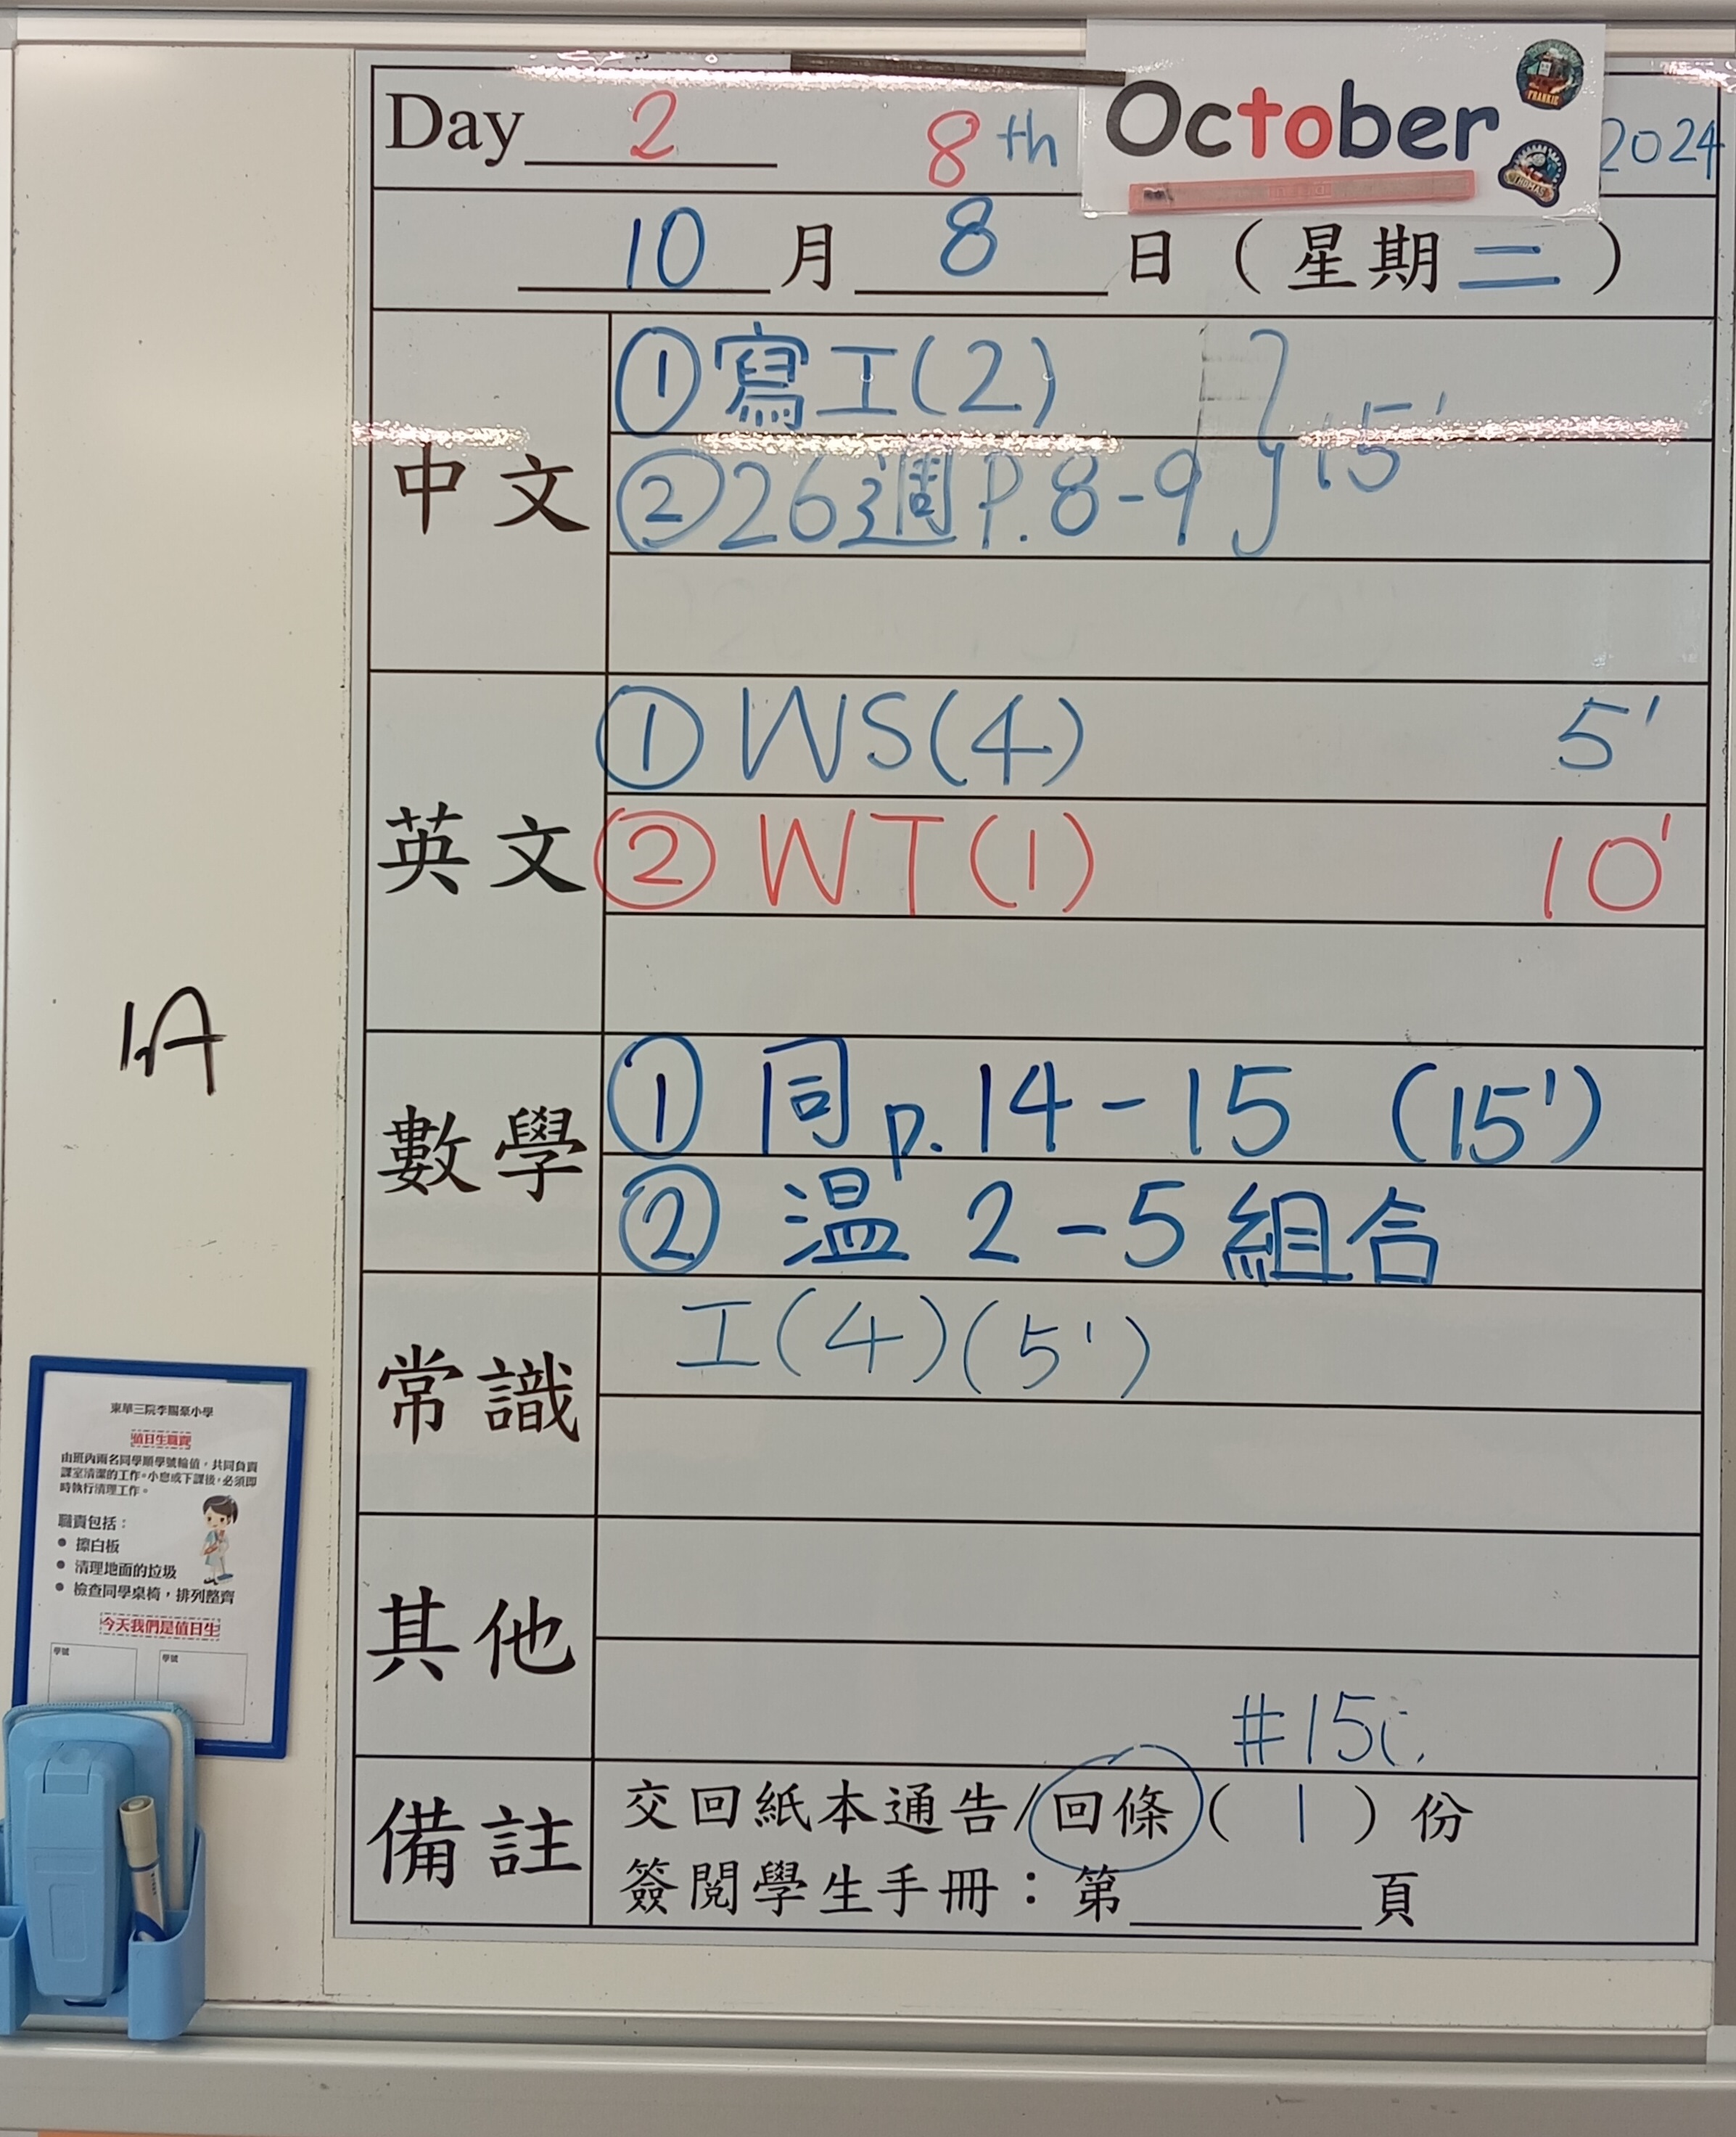 Day 2 8th October 2024
FRANKIE
THOMAS
10 月 8 日 (星期二)
中文
① 寫工(2)
② 26週 P.8-9 } 15'
英文
① WS(4) 5'
② WT(1) 10'
1A
數學
① 同 p.14-15 (15')
② 温 2-5 組合
常識
工(4)(5')
其他
#15
備註
交回紙本通告/回條( 1 )份
簽閱學生手冊：第 頁
東華三院李賜豪小學
值日生職責
由班內兩名同學順學號輪值，共同負責
課室清潔的工作。小息或下課後，必須即
時執行清理工作。
職責包括：
● 擦白板
● 清理地面的垃圾
● 檢查同學桌椅，排列整齊
今天我們是值日生
學號 學號